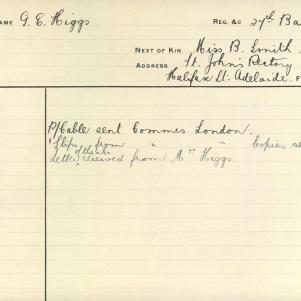 NAME G. E. Higgs REG. &C 27th Ba
NEXT OF KIN Miss B. Smith
ADDRESS St. John's Rectory
Halifax St. Adelaide. F
P/Cable sent Commes London.
Slips from " " Copies se
of thanks
Letter received from Mr Higgs.